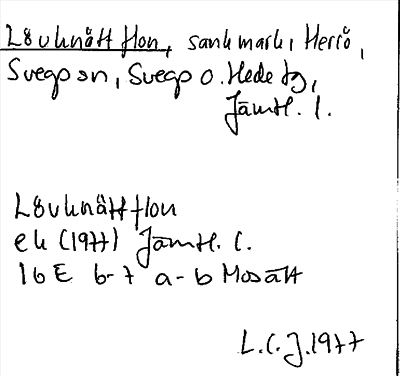 Lövknätt flon, sank mark, Herrö,
Svegs sn, Svegs o. Hede tg,
Jämtl. l.
Lövknättflon
ek (1977) Jämtl. l.
16E 6-7 a-b Mosätt
L.C.J. 1977